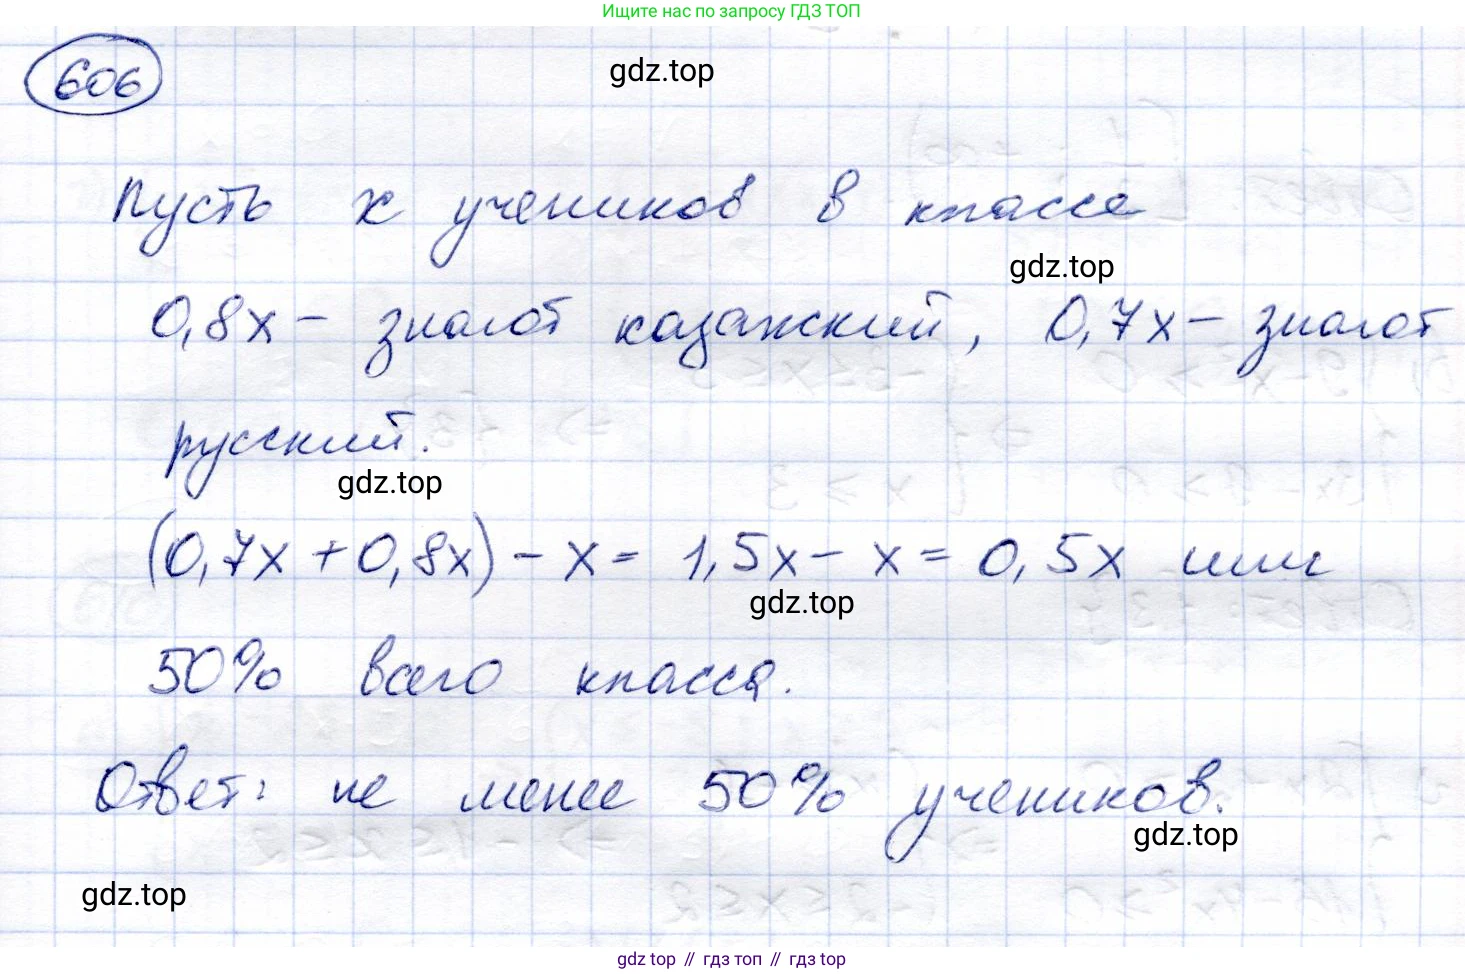 Ищите нас по запросу ГДЗ ТОП
606
gdz.top
Пусть x учеников в классе
gdz.top
0,8x - знают казахский, 0,7x - знают
русский.
gdz.top
(0,7x + 0,8x) - x = 1,5x - x = 0,5x или
gdz.top
50% всего класса.
Ответ: не менее 50% учеников.
gdz.top
gdz.top
gdz top // гдз топ // гдз top